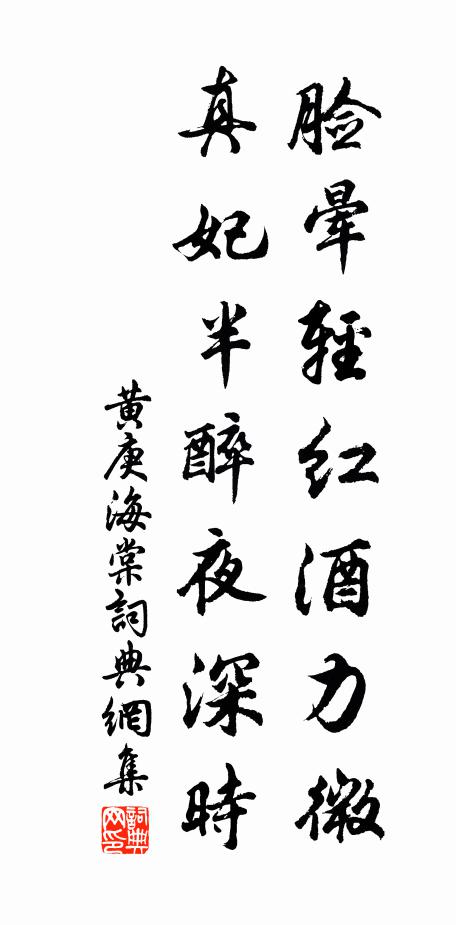 脸晕輕红酒力微
真妃半醉夜深時
黄庚海棠詞典網集
詞典
网印